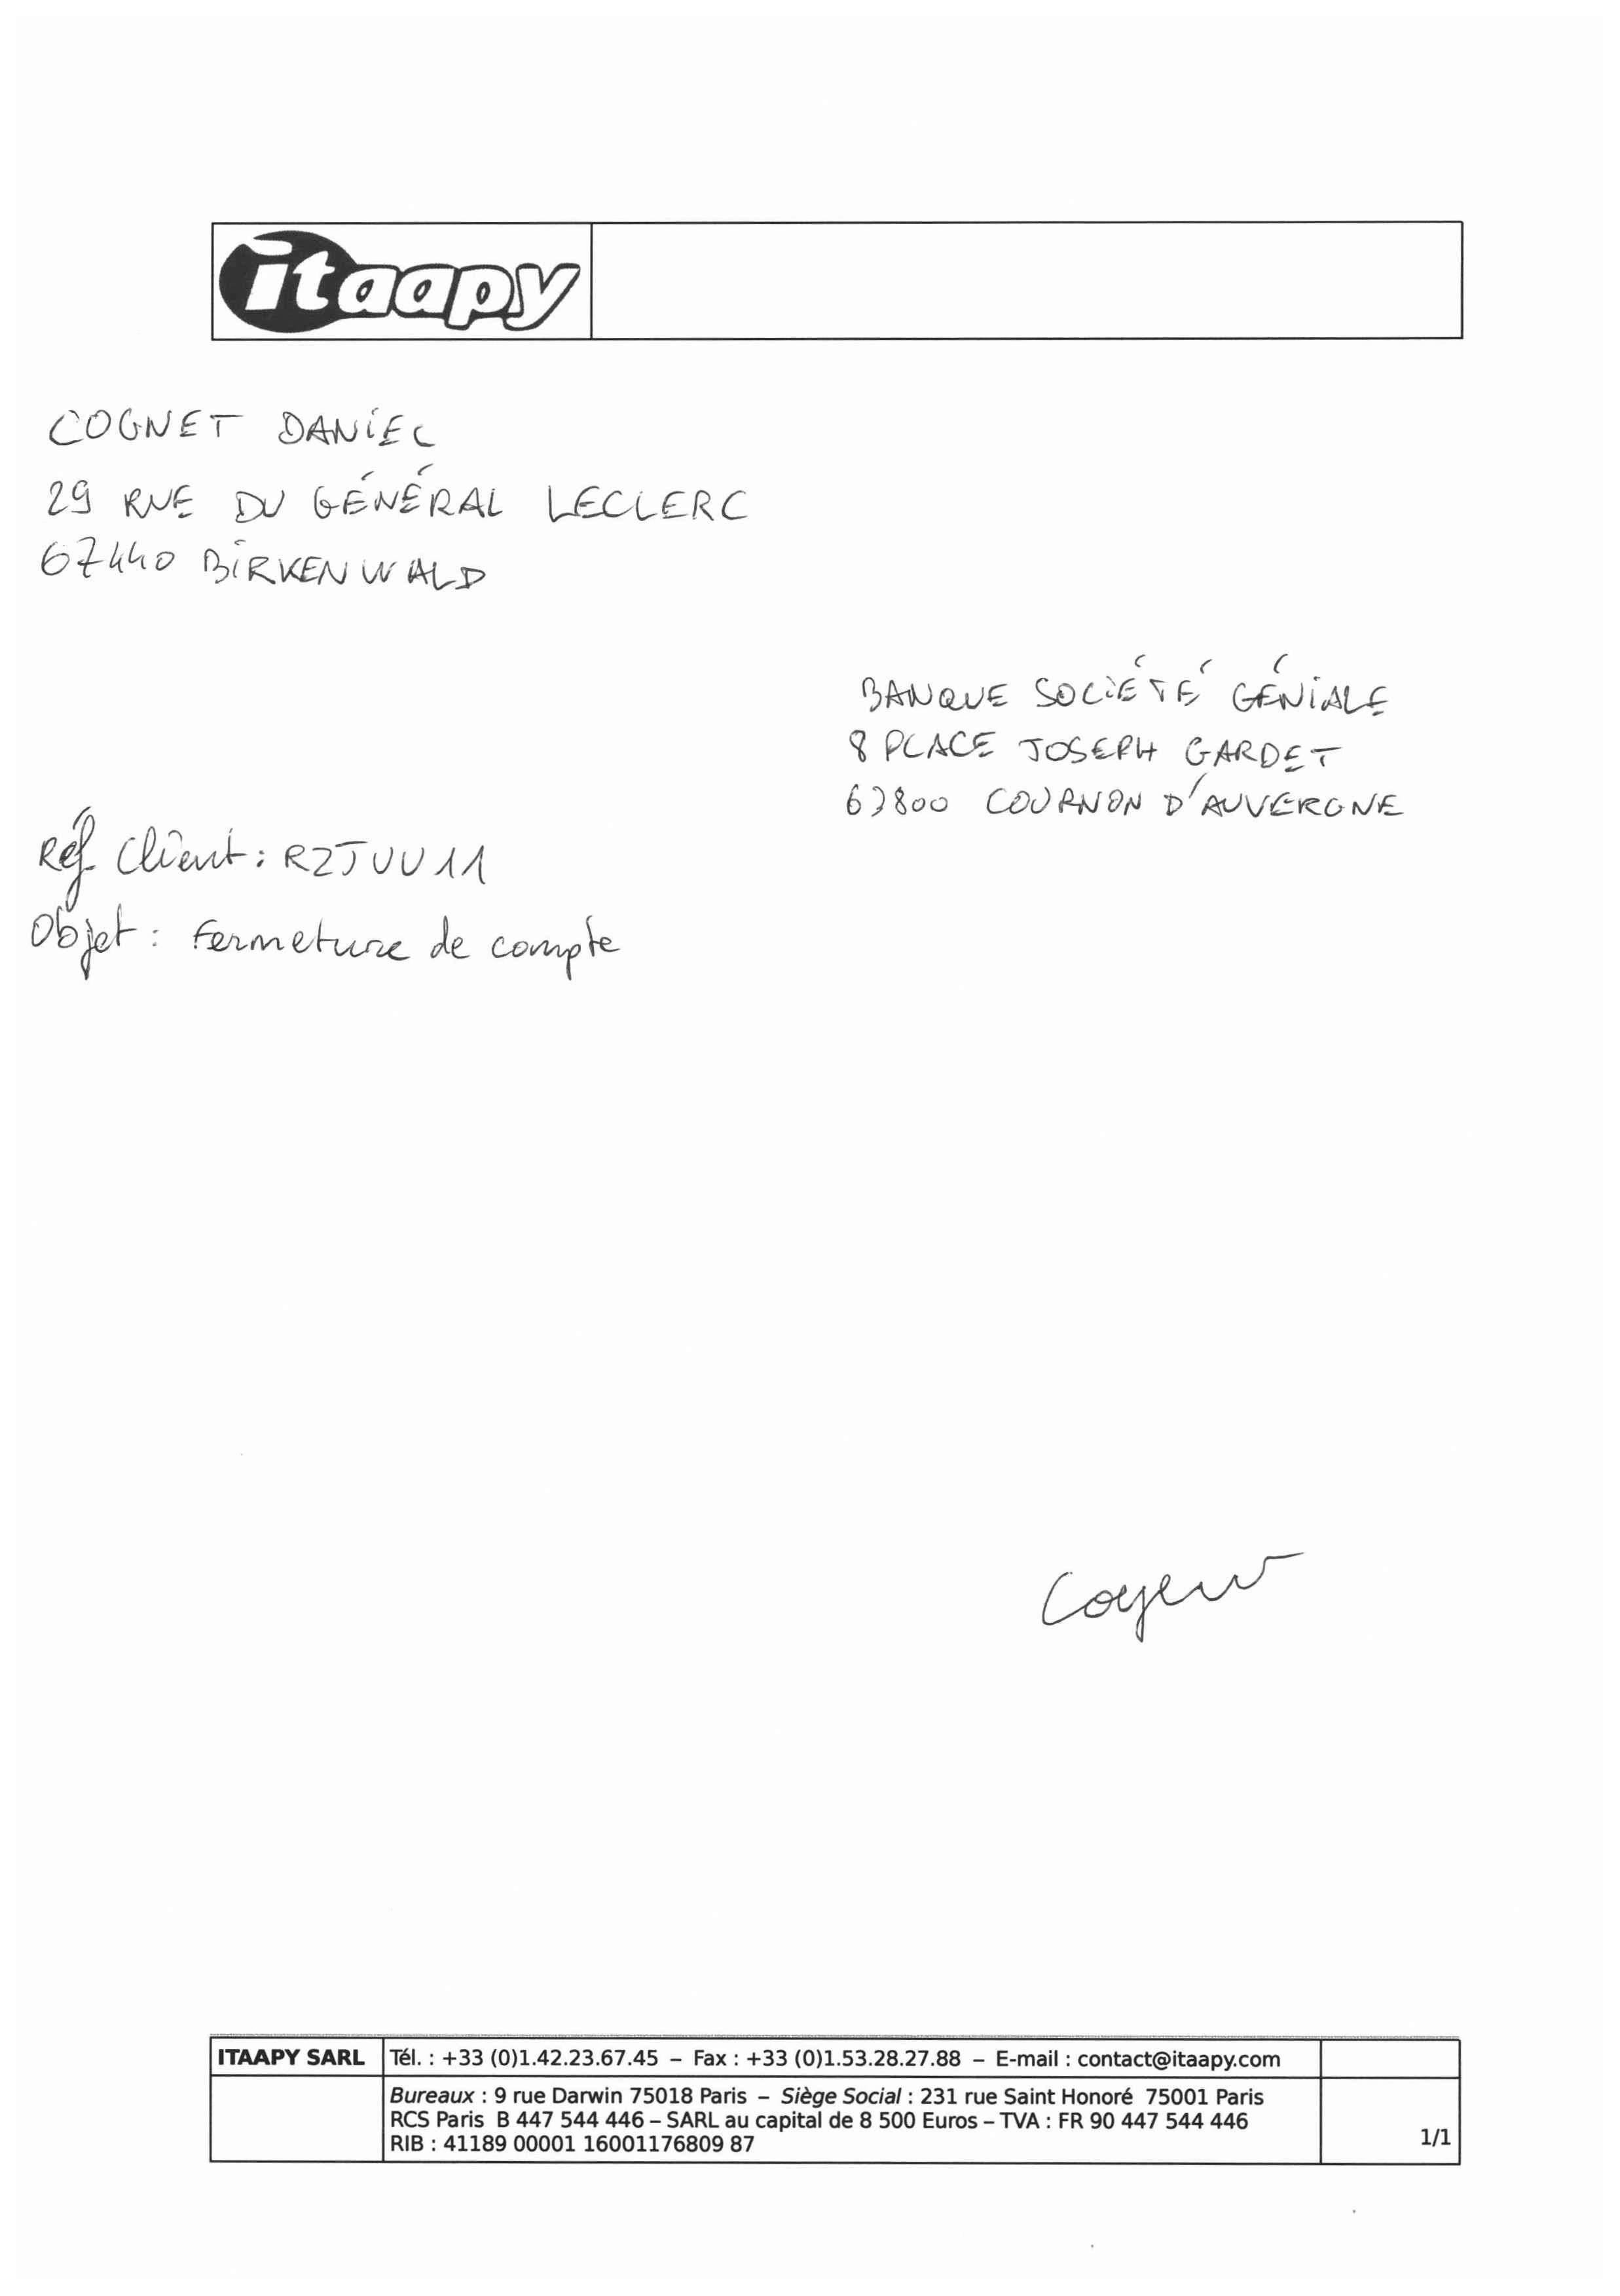 itaapy
COGNET DANIEL
29 RUE DU GÉNÉRAL LECLERC
67440 BIRKENWALD
BANQUE SOCIÉTÉ GÉNIALE
8 PLACE JOSEPH GARDET
63800 COURNON D'AUVERGNE
Réf Client : RZJUU11
Objet : Fermeture de compte
ITAAPY SARL Tél. : +33 (0)1.42.23.67.45 – Fax : +33 (0)1.53.28.27.88 – E-mail : contact@itaapy.com
Bureaux : 9 rue Darwin 75018 Paris – Siège Social : 231 rue Saint Honoré 75001 Paris
RCS Paris B 447 544 446 – SARL au capital de 8 500 Euros – TVA : FR 90 447 544 446
RIB : 41189 00001 16001176809 87
1/1